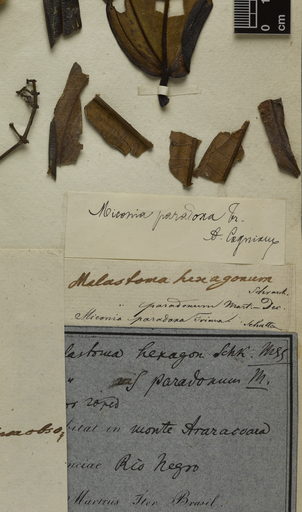 0 1
Miconia paradoxa Tr.
A. Cogniaux
Melastoma hexagonum
Schrank.
" paradoxum Mart. Dec
Miconia paradoxa Triana
lastoma hexagon Schk. Mss
" paradoxum M.
bitat in monte Araracoara
inciae Rio Negro
Martius Iter Brasil.